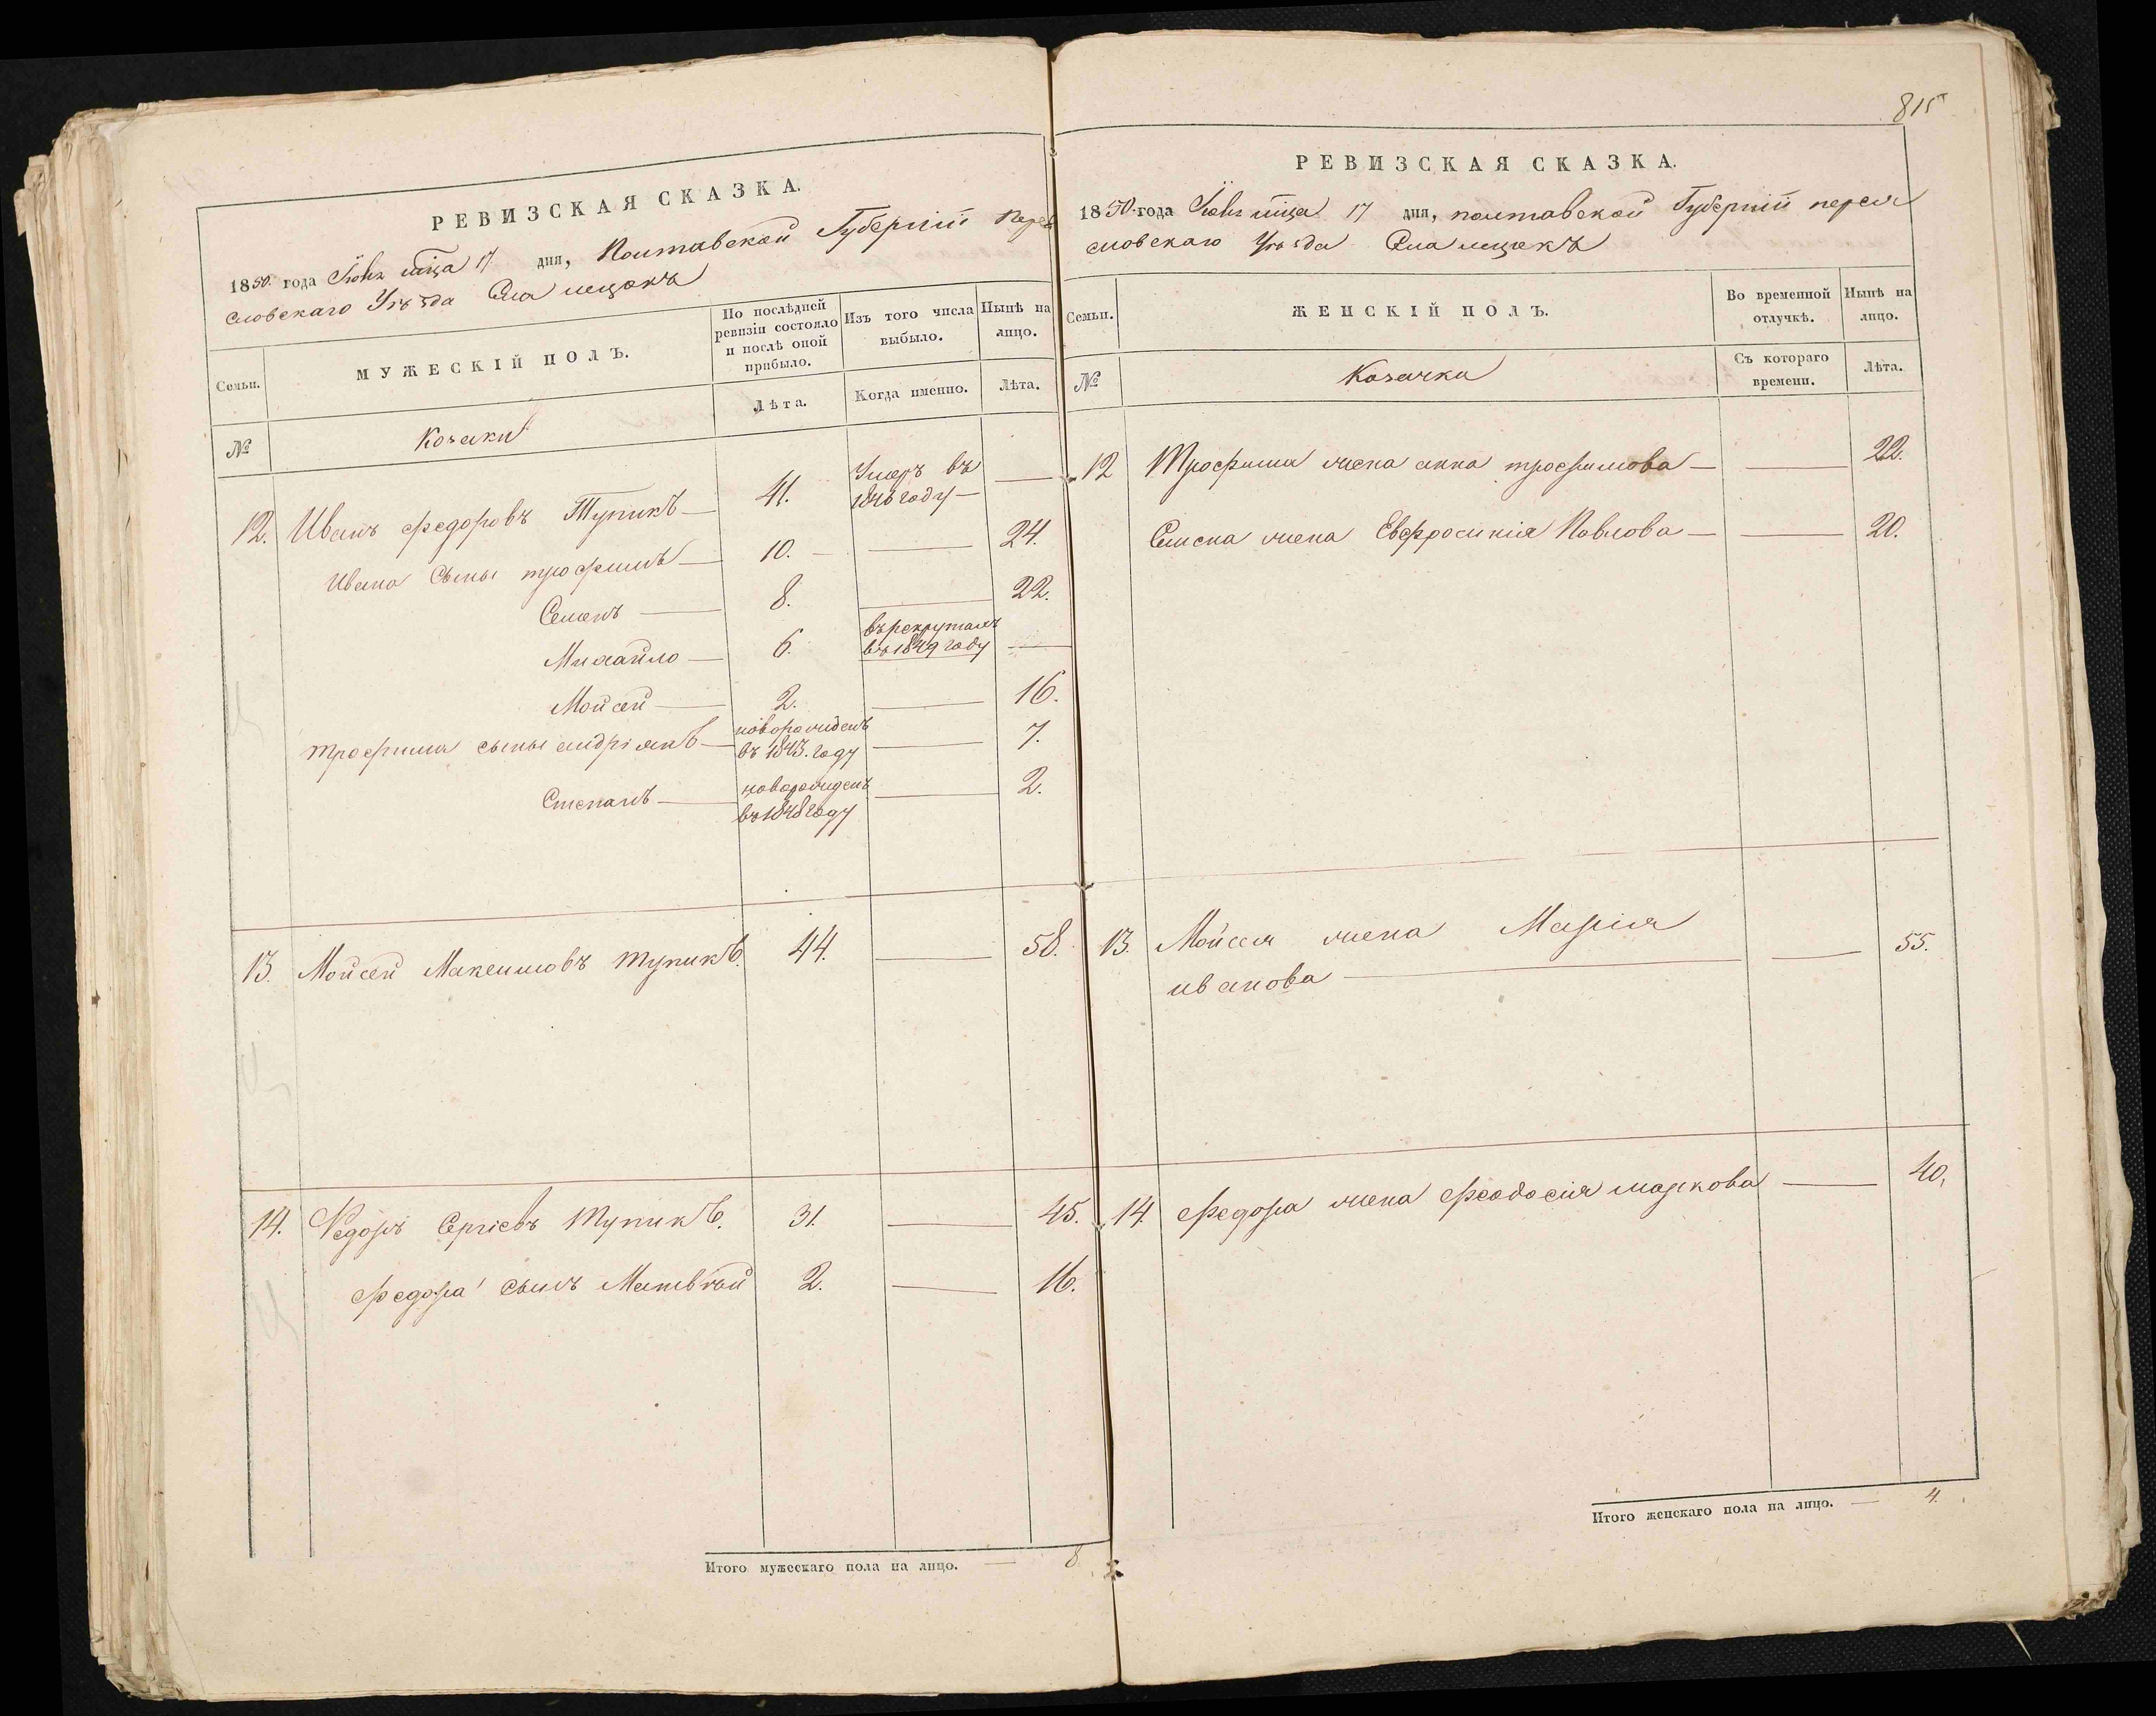 РЕВИЗСКАЯ СКАЗКА.
1850 года Іюня мца 17 дня, Полтавской Губерніи Перея
словскаго Уѣзда Села
Семьи.
МУЖЕСКІЙ ПОЛЪ.
По послѣдней ревизіи состояло и послѣ оной прибыло.
Изъ того числа выбыло.
Нынѣ на лицо.
№
Козаки
Лѣта.
Когда именно.
Лѣта.
12. Иванъ Федоровъ Тупикъ — 41. Умеръ въ 1846 году — —
Ивана Сыны трофимъ — 10. — — 24.
Семенъ — 8. — 22.
Михайло — 6. въ рекрутахъ въ 1849 году —
Мойсей — 2. — 16.
трофима сыны андріянъ — новорожденъ въ 1843. году — 7.
Степанъ — новорожденъ въ 1848 году — 2.
13. Мойсей Максимовъ тупикъ. 44. — 58.
14. Федоръ Сергіевъ Тупикъ. 31. — 45.
Федора сынъ Матвѣй 2. — 16.
Итого мужескаго пола на лицо. — 8
815
РЕВИЗСКАЯ СКАЗКА.
1850 года Іюня мца 17 дня, полтавской Губерніи перея
словскаго Уѣзда Села
Семьи.
ЖЕНСКІЙ ПОЛЪ.
Во временной отлучкѣ.
Нынѣ на лицо.
№
Козачки
Съ котораго времени.
Лѣта.
12 Трофима жена анна трофимова — — 22.
Семена жена Евфросинія Павлова — — 20.
13. Мойсея жена Марія
иванова — — 55.
14. Федора жена Феодосія маркова — 40,
Итого женскаго пола на лицо. — 4.